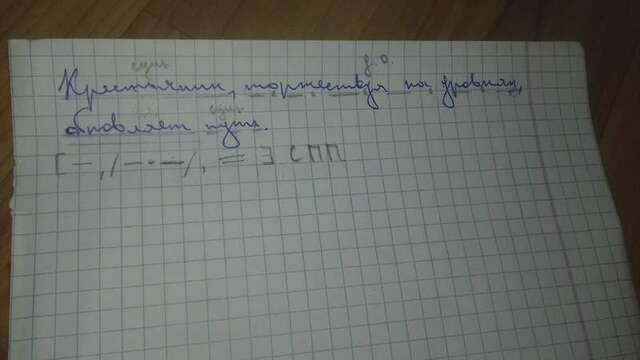 сущ д.о.
Крестьянин, торжествуя на дровнях,
сущ
обновляет путь.
[ —, /—·—/, = ] СПП